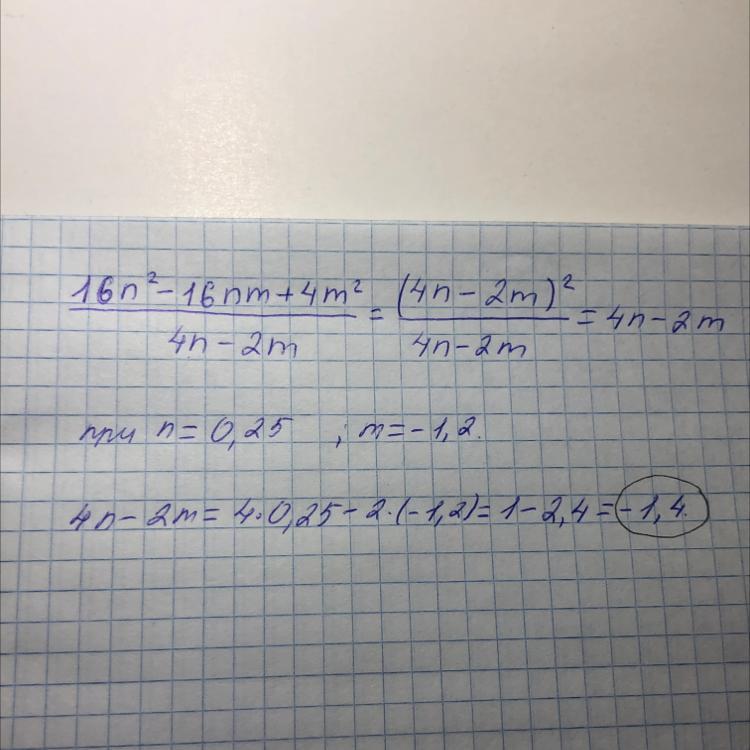 (16n² - 16nm + 4m²)/(4n - 2m) = (4n - 2m)²/(4n - 2m) = 4n - 2m
при n = 0,25 ; m = -1,2.
4n - 2m = 4·0,25 - 2·(-1,2) = 1 - 2,4 = -1,4.